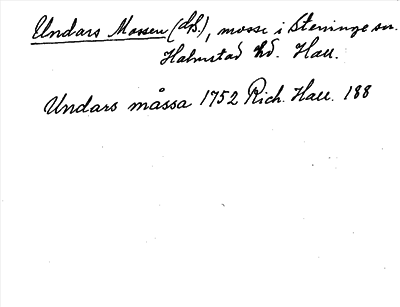 Undars Mossen (dS.), mosse i Steninge sn.
Halmstad hd. Hall.
Undars måssa 1752 Rich. Hall. 188